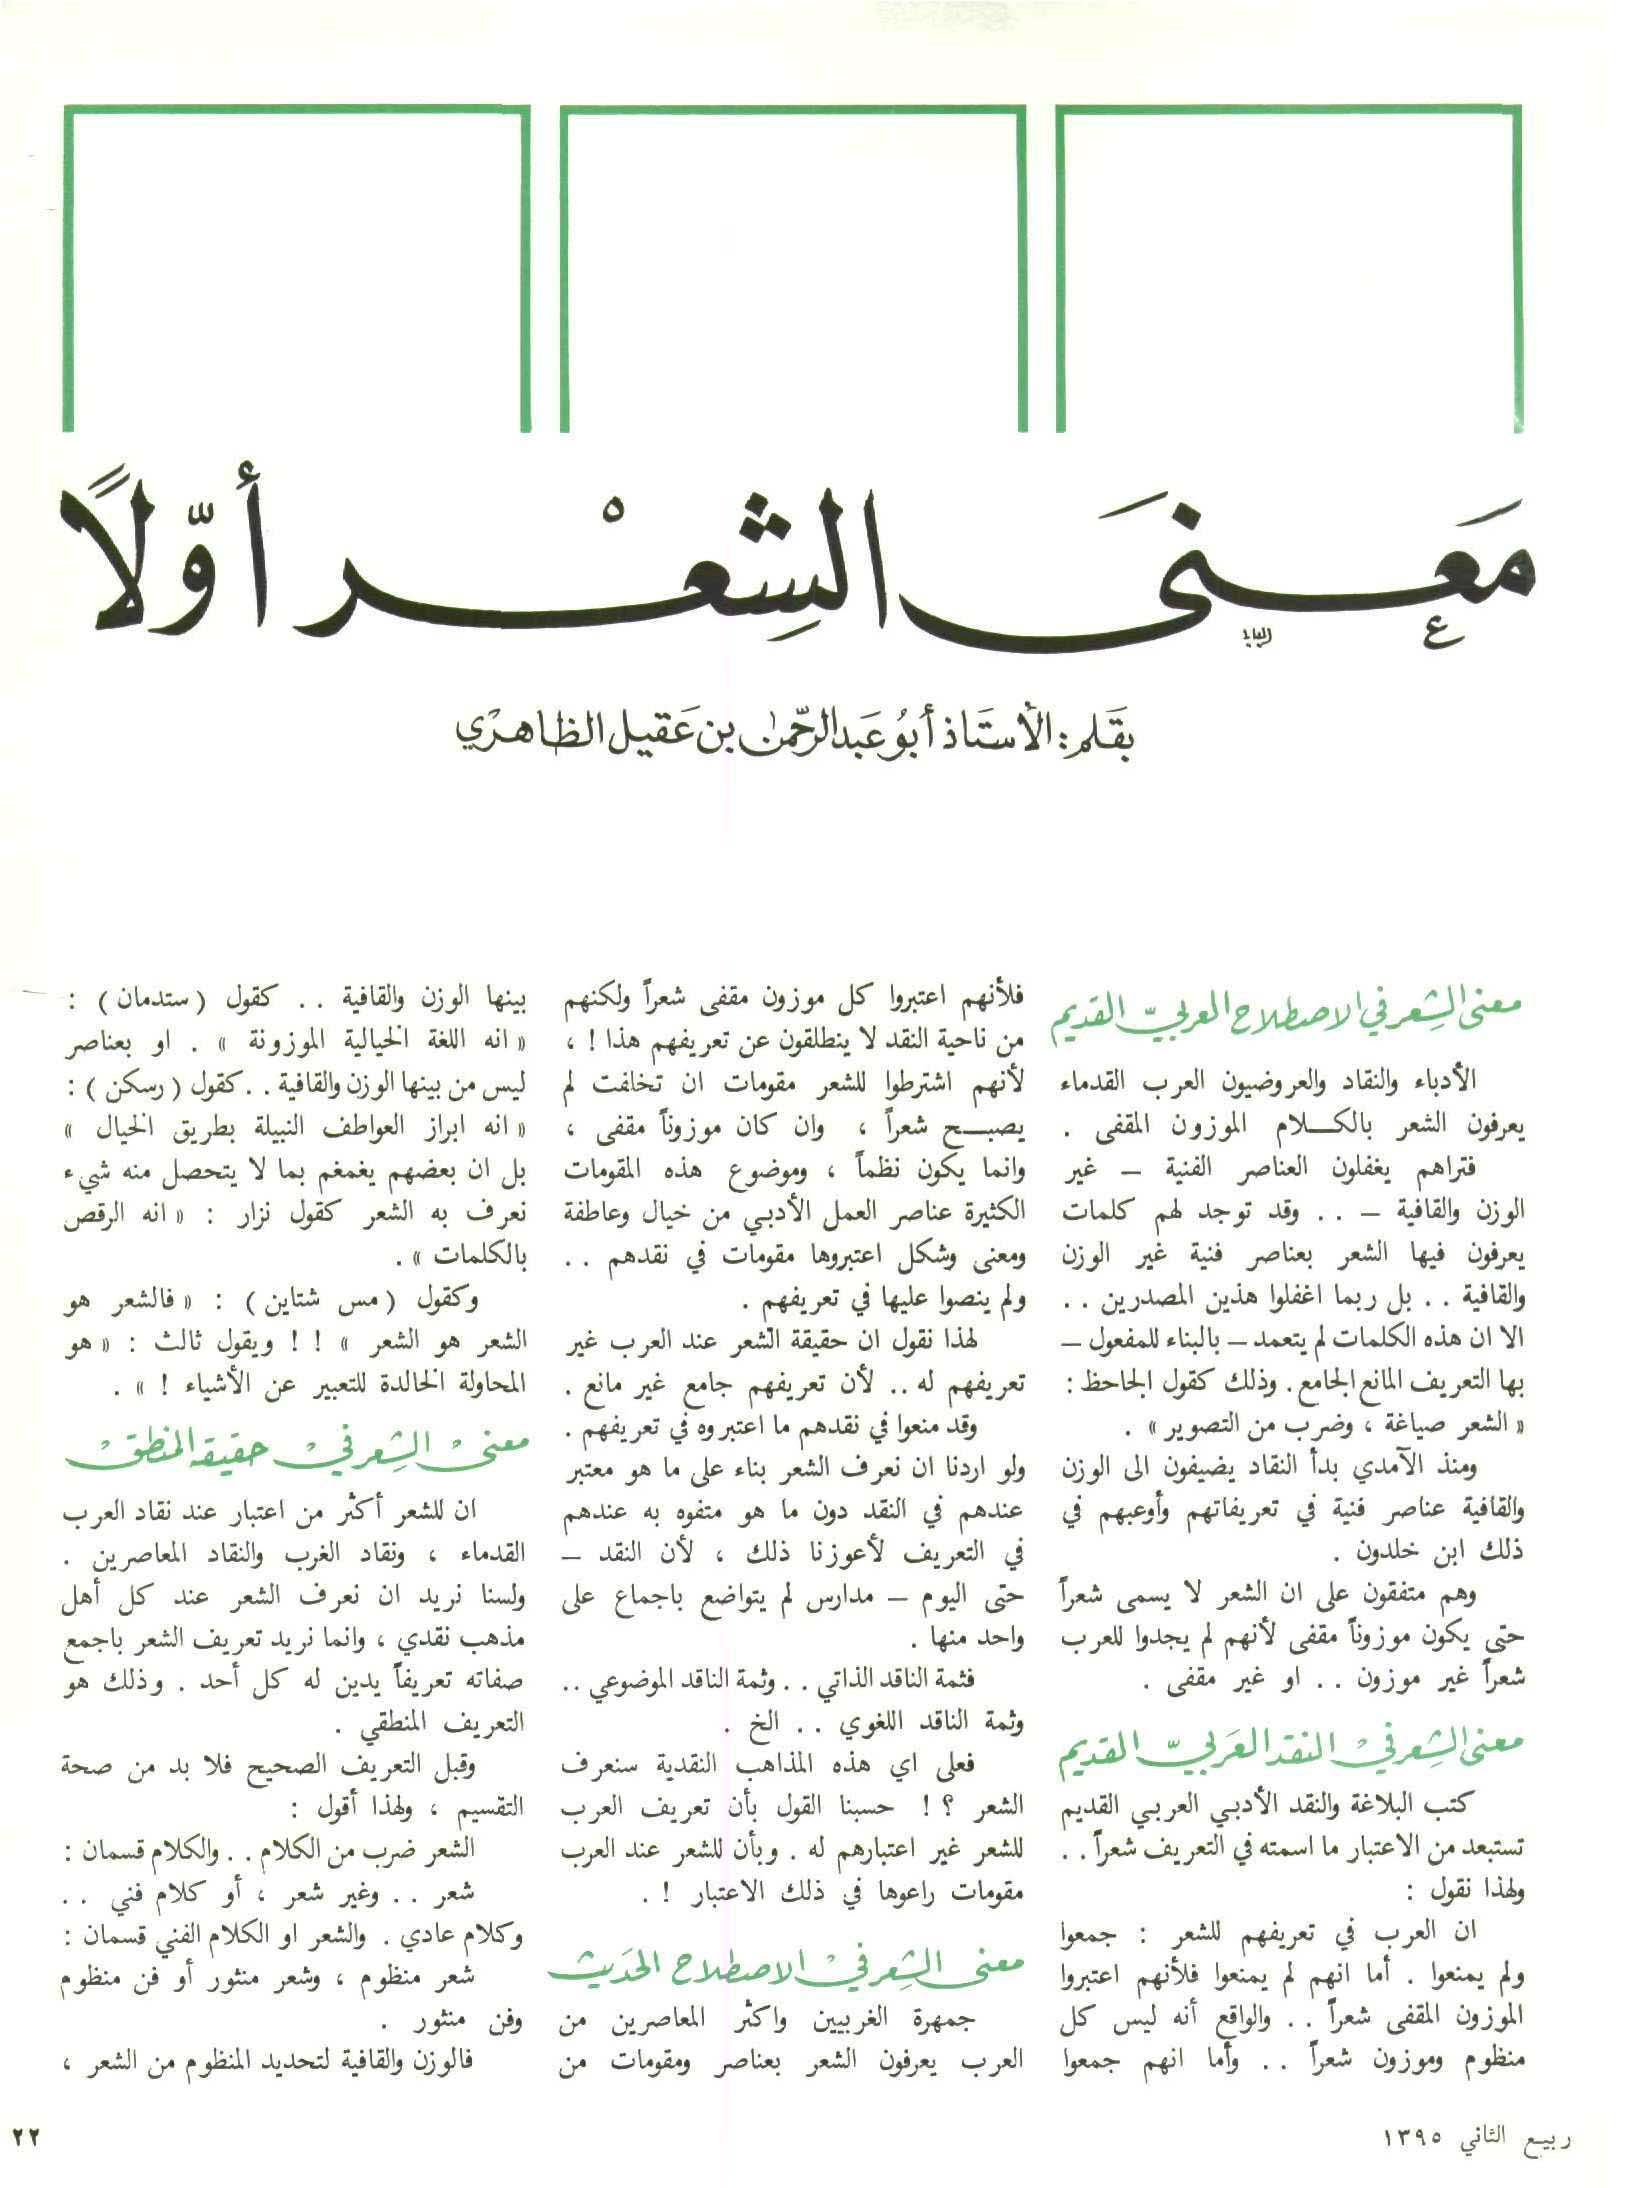 معنى الشعر أولاً
بقلم: الأستاذ أبو عبد الرحمن بن عقيل الظاهري
معنى الشعر في الاصطلاح العربي القديم
الأدباء والنقاد والعروضيون العرب القدماء
يعرفون الشعر بالكلام الموزون المقفى .
فتراهم يغفلون العناصر الفنية – غير
الوزن والقافية – . . وقد توجد لهم كلمات
يعرفون فيها الشعر بعناصر فنية غير الوزن
والقافية . . بل ربما اغفلوا هذين المصدرين . .
الا ان هذه الكلمات لم يتعمد – بالبناء للمفعول –
بها التعريف المانع الجامع . وذلك كقول الجاحظ :
« الشعر صياغة ، وضرب من التصوير » .
ومنذ الآمدي بدأ النقاد يضيفون الى الوزن
والقافية عناصر فنية في تعريفاتهم وأوعبهم في
ذلك ابن خلدون .
وهم متفقون على ان الشعر لا يسمى شعراً
حتى يكون موزوناً مقفى لأنهم لم يجدوا للعرب
شعراً غير موزون . . او غير مقفى .
معنى الشعر في النقد العربي القديم
كتب البلاغة والنقد الأدبي العربي القديم
تستبعد من الاعتبار ما اسمته في التعريف شعراً . .
ولهذا نقول :
ان العرب في تعريفهم للشعر : جمعوا
ولم يمنعوا . أما انهم لم يمنعوا فلأنهم اعتبروا
الموزون المقفى شعراً . . والواقع أنه ليس كل
منظوم وموزون شعراً . . وأما انهم جمعوا
فلأنهم اعتبروا كل موزون مقفى شعراً ولكنهم
من ناحية النقد لا ينطلقون عن تعريفهم هذا ! ،
لأنهم اشترطوا للشعر مقومات ان تخلفت لم
يصبح شعراً ، وان كان موزوناً مقفى ،
وانما يكون نظماً ، وموضوع هذه المقومات
الكثيرة عناصر العمل الأدبي من خيال وعاطفة
ومعنى وشكل اعتبروها مقومات في نقدهم . .
ولم ينصوا عليها في تعريفهم .
لهذا نقول ان حقيقة الشعر عند العرب غير
تعريفهم له . . لأن تعريفهم جامع غير مانع .
وقد منعوا في نقدهم ما اعتبروه في تعريفهم .
ولو اردنا ان نعرف الشعر بناء على ما هو معتبر
عندهم في النقد دون ما هو متفوه به عندهم
في التعريف لأعوزنا ذلك ، لأن النقد –
حتى اليوم – مدارس لم يتواضع باجماع على
واحد منها .
فثمة الناقد الذاتي . . وثمة الناقد الموضوعي . .
وثمة الناقد اللغوي . . الخ .
فعلى اي هذه المذاهب النقدية سنعرف
الشعر ؟ ! حسبنا القول بأن تعريف العرب
للشعر غير اعتبارهم له . وبأن للشعر عند العرب
مقومات راعوها في ذلك الاعتبار ! .
معنى الشعر في الاصطلاح الحديث
جمهرة الغربيين واكثر المعاصرين من
العرب يعرفون الشعر بعناصر ومقومات من
بينها الوزن والقافية . . كقول ( ستدمان ) :
« انه اللغة الخيالية الموزونة » . او بعناصر
ليس من بينها الوزن والقافية . . كقول ( رسكن ) :
« انه ابراز العواطف النبيلة بطريق الخيال »
بل ان بعضهم يغمغم بما لا يتحصل منه شيء
نعرف به الشعر كقول نزار : « انه الرقص
بالكلمات » .
وكقول ( مس شتاين ) : « فالشعر هو
الشعر هو الشعر » ! ! ويقول ثالث : « هو
المحاولة الخالدة للتعبير عن الأشياء ! » .
معنى الشعر في حقيقة المنطق
ان للشعر أكثر من اعتبار عند نقاد العرب
القدماء ، ونقاد الغرب والنقاد المعاصرين .
ولسنا نريد ان نعرف الشعر عند كل أهل
مذهب نقدي ، وانما نريد تعريف الشعر باجمع
صفاته تعريفاً يدين له كل أحد . وذلك هو
التعريف المنطقي .
وقبل التعريف الصحيح فلا بد من صحة
التقسيم ، ولهذا أقول :
الشعر ضرب من الكلام . . والكلام قسمان :
شعر . . وغير شعر ، أو كلام فني . .
وكلام عادي . والشعر او الكلام الفني قسمان :
شعر منظوم ، وشعر منثور أو فن منظوم
وفن منثور .
فالوزن والقافية لتحديد المنظوم من الشعر ،
ربيع الثاني ١٣٩٥
٢٢